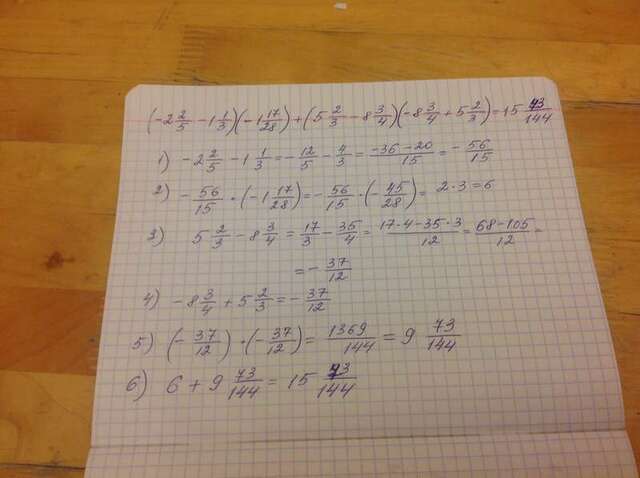 (-2 2/5 - 1 1/3)(-1 17/28) + (5 2/3 - 8 3/4)(-8 3/4 + 5 2/3) = 15 73/144
1) -2 2/5 - 1 1/3 = -12/5 - 4/3 = (-36-20)/15 = -56/15
2) -56/15 · (-1 17/28) = -56/15 · (-45/28) = 2·3 = 6
3) 5 2/3 - 8 3/4 = 17/3 - 35/4 = (17·4-35·3)/12 = (68-105)/12 =
= -37/12
4) -8 3/4 + 5 2/3 = -37/12
5) (-37/12) · (-37/12) = 1369/144 = 9 73/144
6) 6 + 9 73/144 = 15 73/144